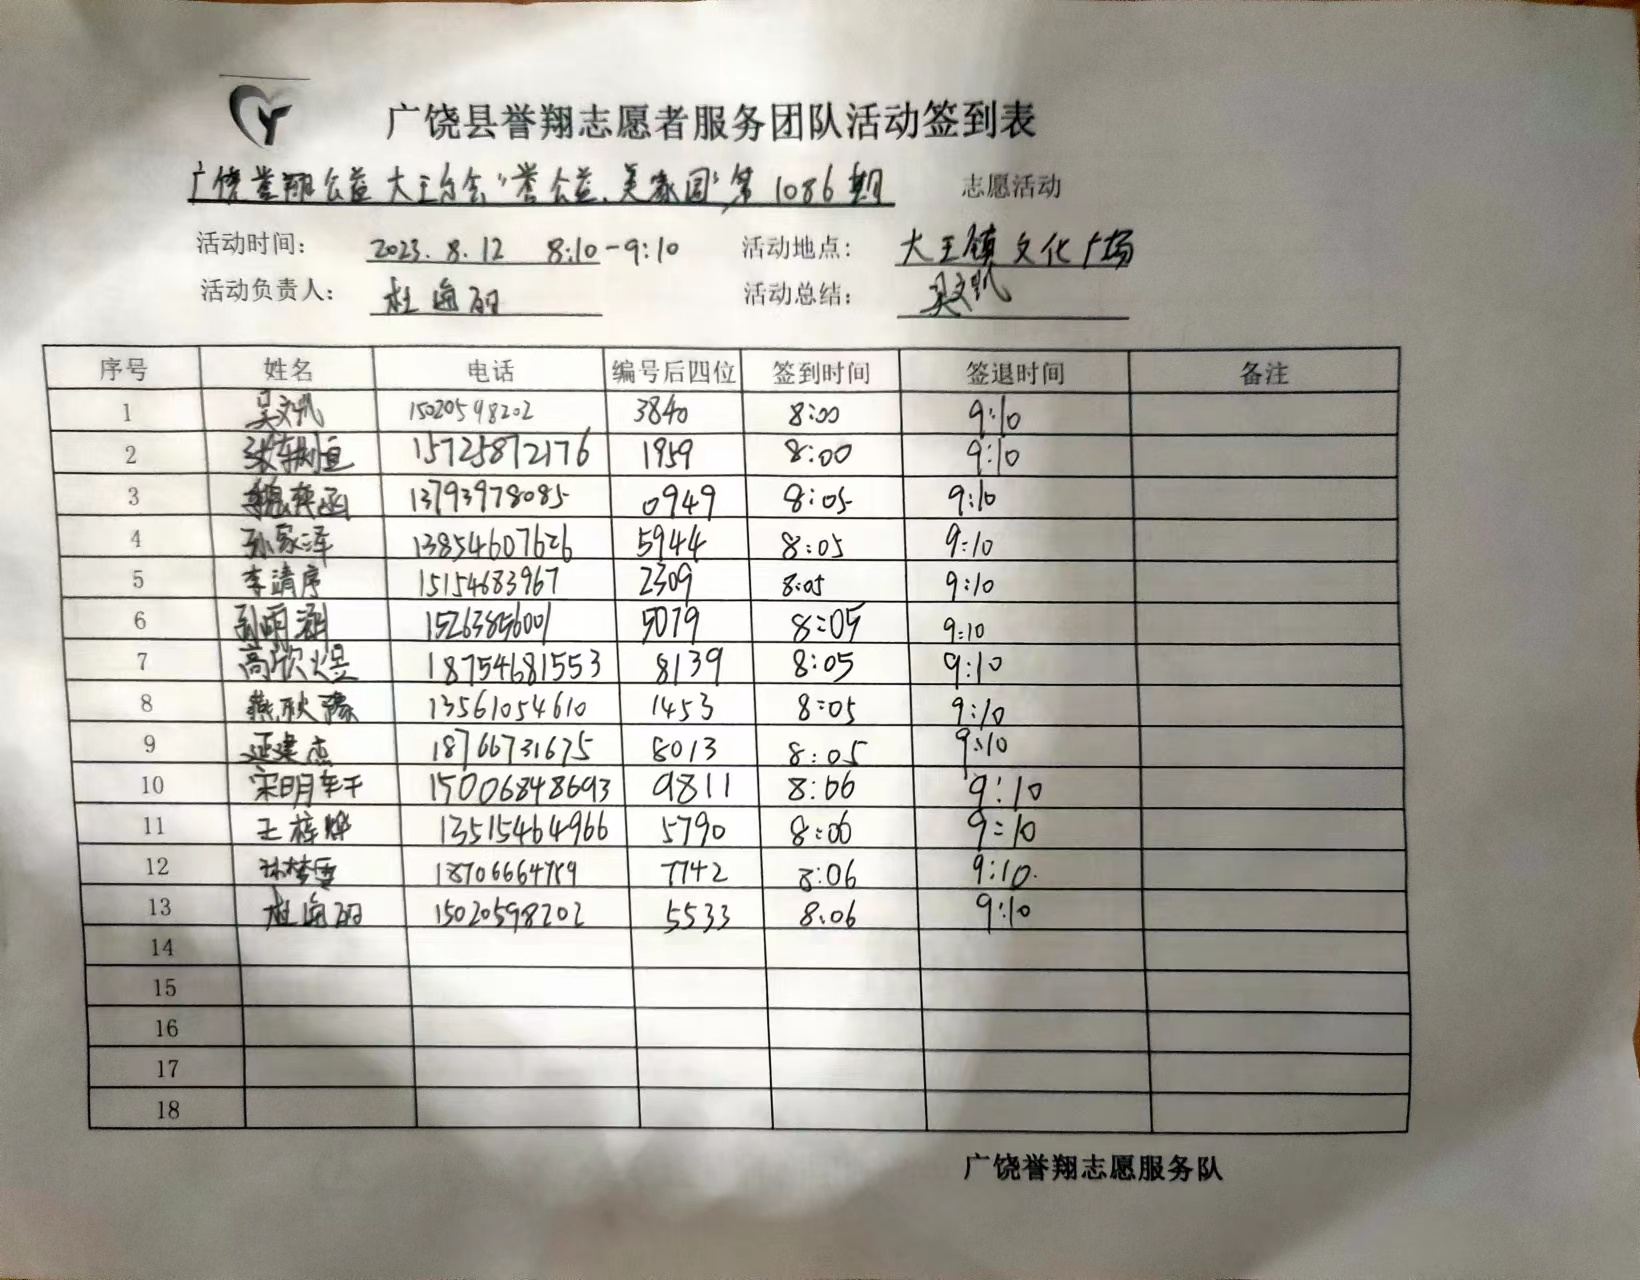 广饶县誉翔志愿者服务团队活动签到表
广饶誉翔公益大王分会“誉公益、美家园”第1086期 志愿活动
活动时间: 2023.8.12 8:10-9:10 活动地点: 大王镇文化广场
活动负责人: 杜海丽 活动总结: 吴文凯
序号 姓名 电话 编号后四位 签到时间 签退时间 备注
1 吴文凯 15020598202 3840 8:00 9:10
2 15725872176 1959 8:00 9:10
3 13793978085 0949 8:05 9:10
4 孙家泽 13854607626 5944 8:05 9:10
5 李靖序 15154683967 2309 8:05 9:10
6 15263856001 5079 8:05 9:10
7 高欣煜 18754681553 8139 8:05 9:10
8 燕耿豫 13561054610 1453 8:05 9:10
9 延建杰 18766731675 8013 8:05 9:10
10 宋明轩 15006848693 9811 8:06 9:10
11 王梓烨 13515464966 5790 8:06 9:10
12 孙梦雪 18706664789 7742 8:06 9:10
13 杜海丽 15020598202 5533 8:06 9:10
14
15
16
17
18
广饶誉翔志愿服务队